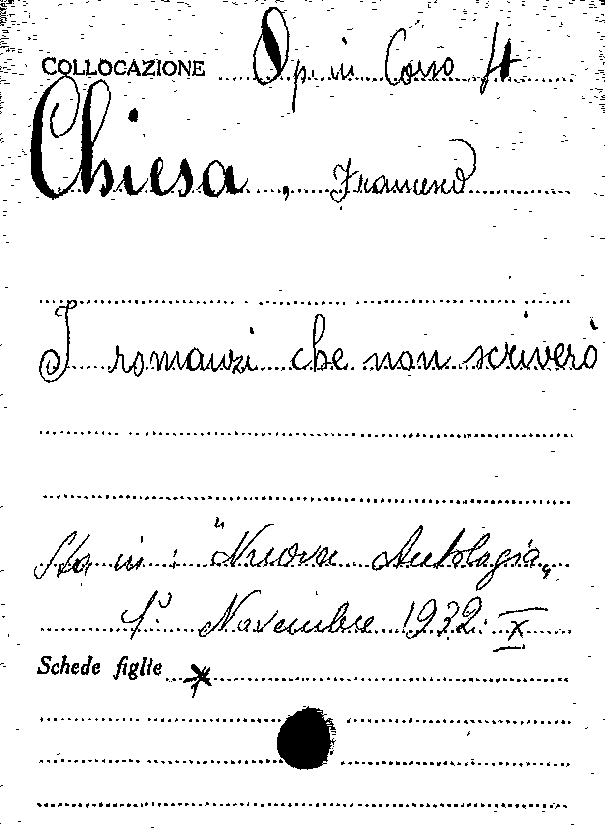 COLLOCAZIONE Op. in Corso
Chiesa, Francesco
I romanzi che non scriverò
Sta in: "Nuova Antologia"
1° Novembre 1932. X
Schede figlie